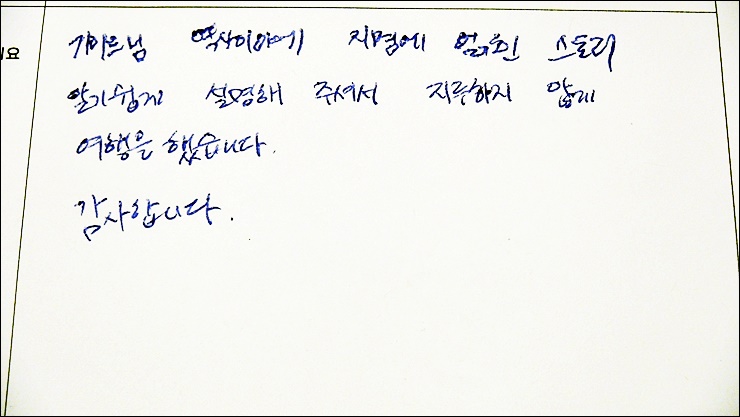 가이드님 역사이야기 지명에 얽힌 스토리
요
알기쉽게 설명해 주셔서 지루하지 않게
여행을 했습니다.
감사합니다.